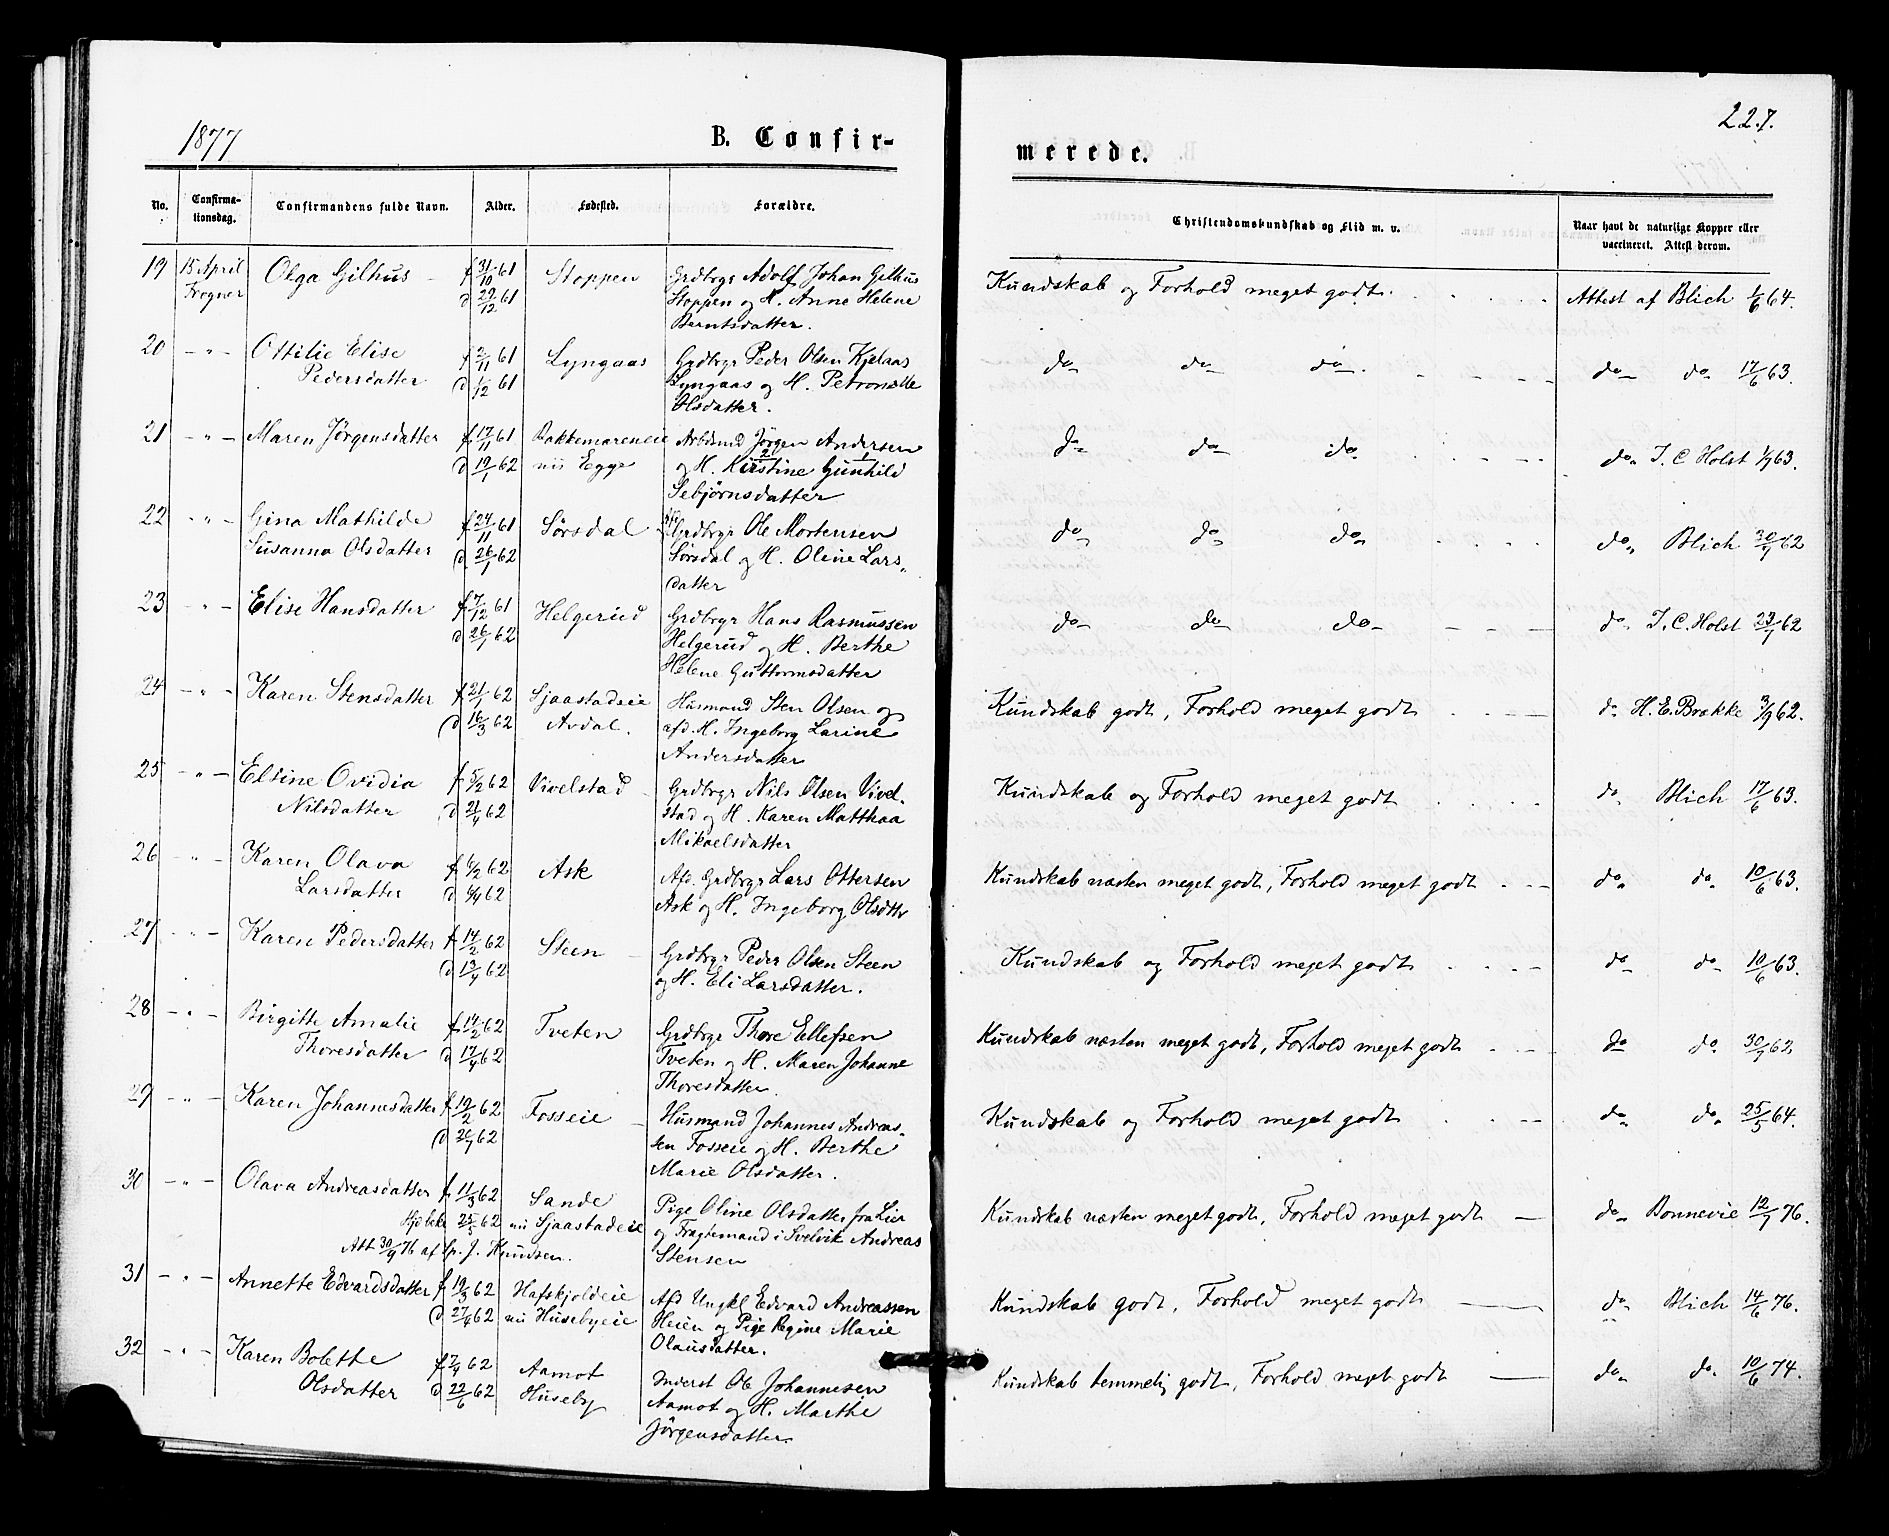 1877
B. Confir-
No.
Confirma-
tionsdag.
Confirmandens fulde Navn.
Alder.
Fødested.
Forældre.
19 15 April Olga Gilhus f 31/10 61 Stoppen Grdbrgr Adolf Johan Gilhus
Frogner d 29/12 61 Stoppen og H. Anne Helene
Berntsdatter.
20 - " - Ottilie Elise f 2/11 61 Lyngaas Grdbrgr Peder Olsen Kjelaas
Pedersdatter d 1/12 61 Lyngaas og H. Petronelle
Olsdatter.
21 - " - Maren Jørgensdatter f 17/11 61 Bakkemareneie Arbdsmd Jörgen Andersen
d 19/1 62 nu Egge og H. Kirstine Gunhild
Sebjörnsdatter
22 - " - Gina Mathilde f 24/11 61 Sørsdal Grdbrgr Ole Mortensen
Susanna Olsdatter d 26/1 62 Sørsdal og H. Oline Lars-
datter
23 - " - Elise Hansdatter f 7/12 61 Helgerud Grdbrgr Hans Rasmussen
d 26/1 62 Helgerud og H. Berthe
Helene Guttormsdatter
24 - " - Karen Stensdatter f 21/1 62 Sjaastadeie Husmand Sten Olsen og
d 16/3 62 Avdal. afd. H. Ingeborg Larine
Andersdatter
25 - " - Elsine Ovidia f 5/2 62 Vivelstad Grdbrgr Nils Olsen Vivel-
Nilsdatter d 21/4 62 stad og H. Karen Matthea
Mikaelsdatter
26 - " - Karen Olava f 6/2 62 Ask Afd. Grdbrgr Lars Ottersen
Larsdatter d 6/4 62 Ask og H. Ingeborg Olsdtr
27 - " - Karen Pedersdatter f 14/2 62 Steen Grdbrgr Peder Olsen Steen
d 13/4 62 og H. Eli Larsdatter.
28 - " - Birgitte Amalie f 14/2 62 Tveten Grdbrgr Thore Ellefsen
Thoresdatter d 17/4 62 Tveten og H. Maren Johanne
Thoresdatter
29 - " - Karen Johannesdatter f 19/2 62 Fosseie Husmand Johannes Andreas-
d 20/4 62 sen Fosseie og H. Berthe
Marie Olsdatter.
30 - " - Olava Andreasdatter f 11/3 62 Sande Pige Oline Olsdatter fra Lier
Hjdbt 25/5 62 nu Sjaastadeie og Fragtemand i Svelvik Andreas
Att 30/9 76 af Sp. J. Knudsen. Stensen
31 - " - Annette Edvardsdatter f 19/3 62 Hafskjoldeie Afd Ungkl Edvard Andreassen
d 27/4 62 nu Husebyeie Heien og Pige Regine Marie
Olausdatter.
32 - " - Karen Bolethe f 7/4 62 Aamot Inderst Ole Johannesen
Olsdatter d 22/6 62 Huseby Aamot og H. Marthe
Jörgensdatter.
227.
merede.
Christendomskundskab og Flid m. v.
Naar havt de naturlige Kopper eller
vaccineret. Attest derom.
Kundskab og Forhold meget godt. Attest af Blich 1/6 64.
do do do. do do 17/6 63.
do do do. do J. C. Holst 1/9 63.
do do do do Blich 30/7 62
do do do do J. C. Holst 23/7 62
Kundskab godt, Forhold meget godt do H. E. Brække 3/9 62.
Kundskab og Forhold meget godt do Blich 17/6 63.
Kundskab næsten meget godt, Forhold meget godt do do 10/6 63.
Kundskab og Forhold meget godt do do 10/6 63.
Kundskab næsten meget godt, Forhold meget godt do do 30/7 62
Kundskab og Forhold meget godt do do 25/5 64.
Kundskab næsten meget godt, Forhold meget godt do Bonnevie 12/7 76.
Kundskab godt, Forhold meget godt do Blich 14/6 76.
Kundskab temmelig godt, Forhold meget godt do do 10/6 74.